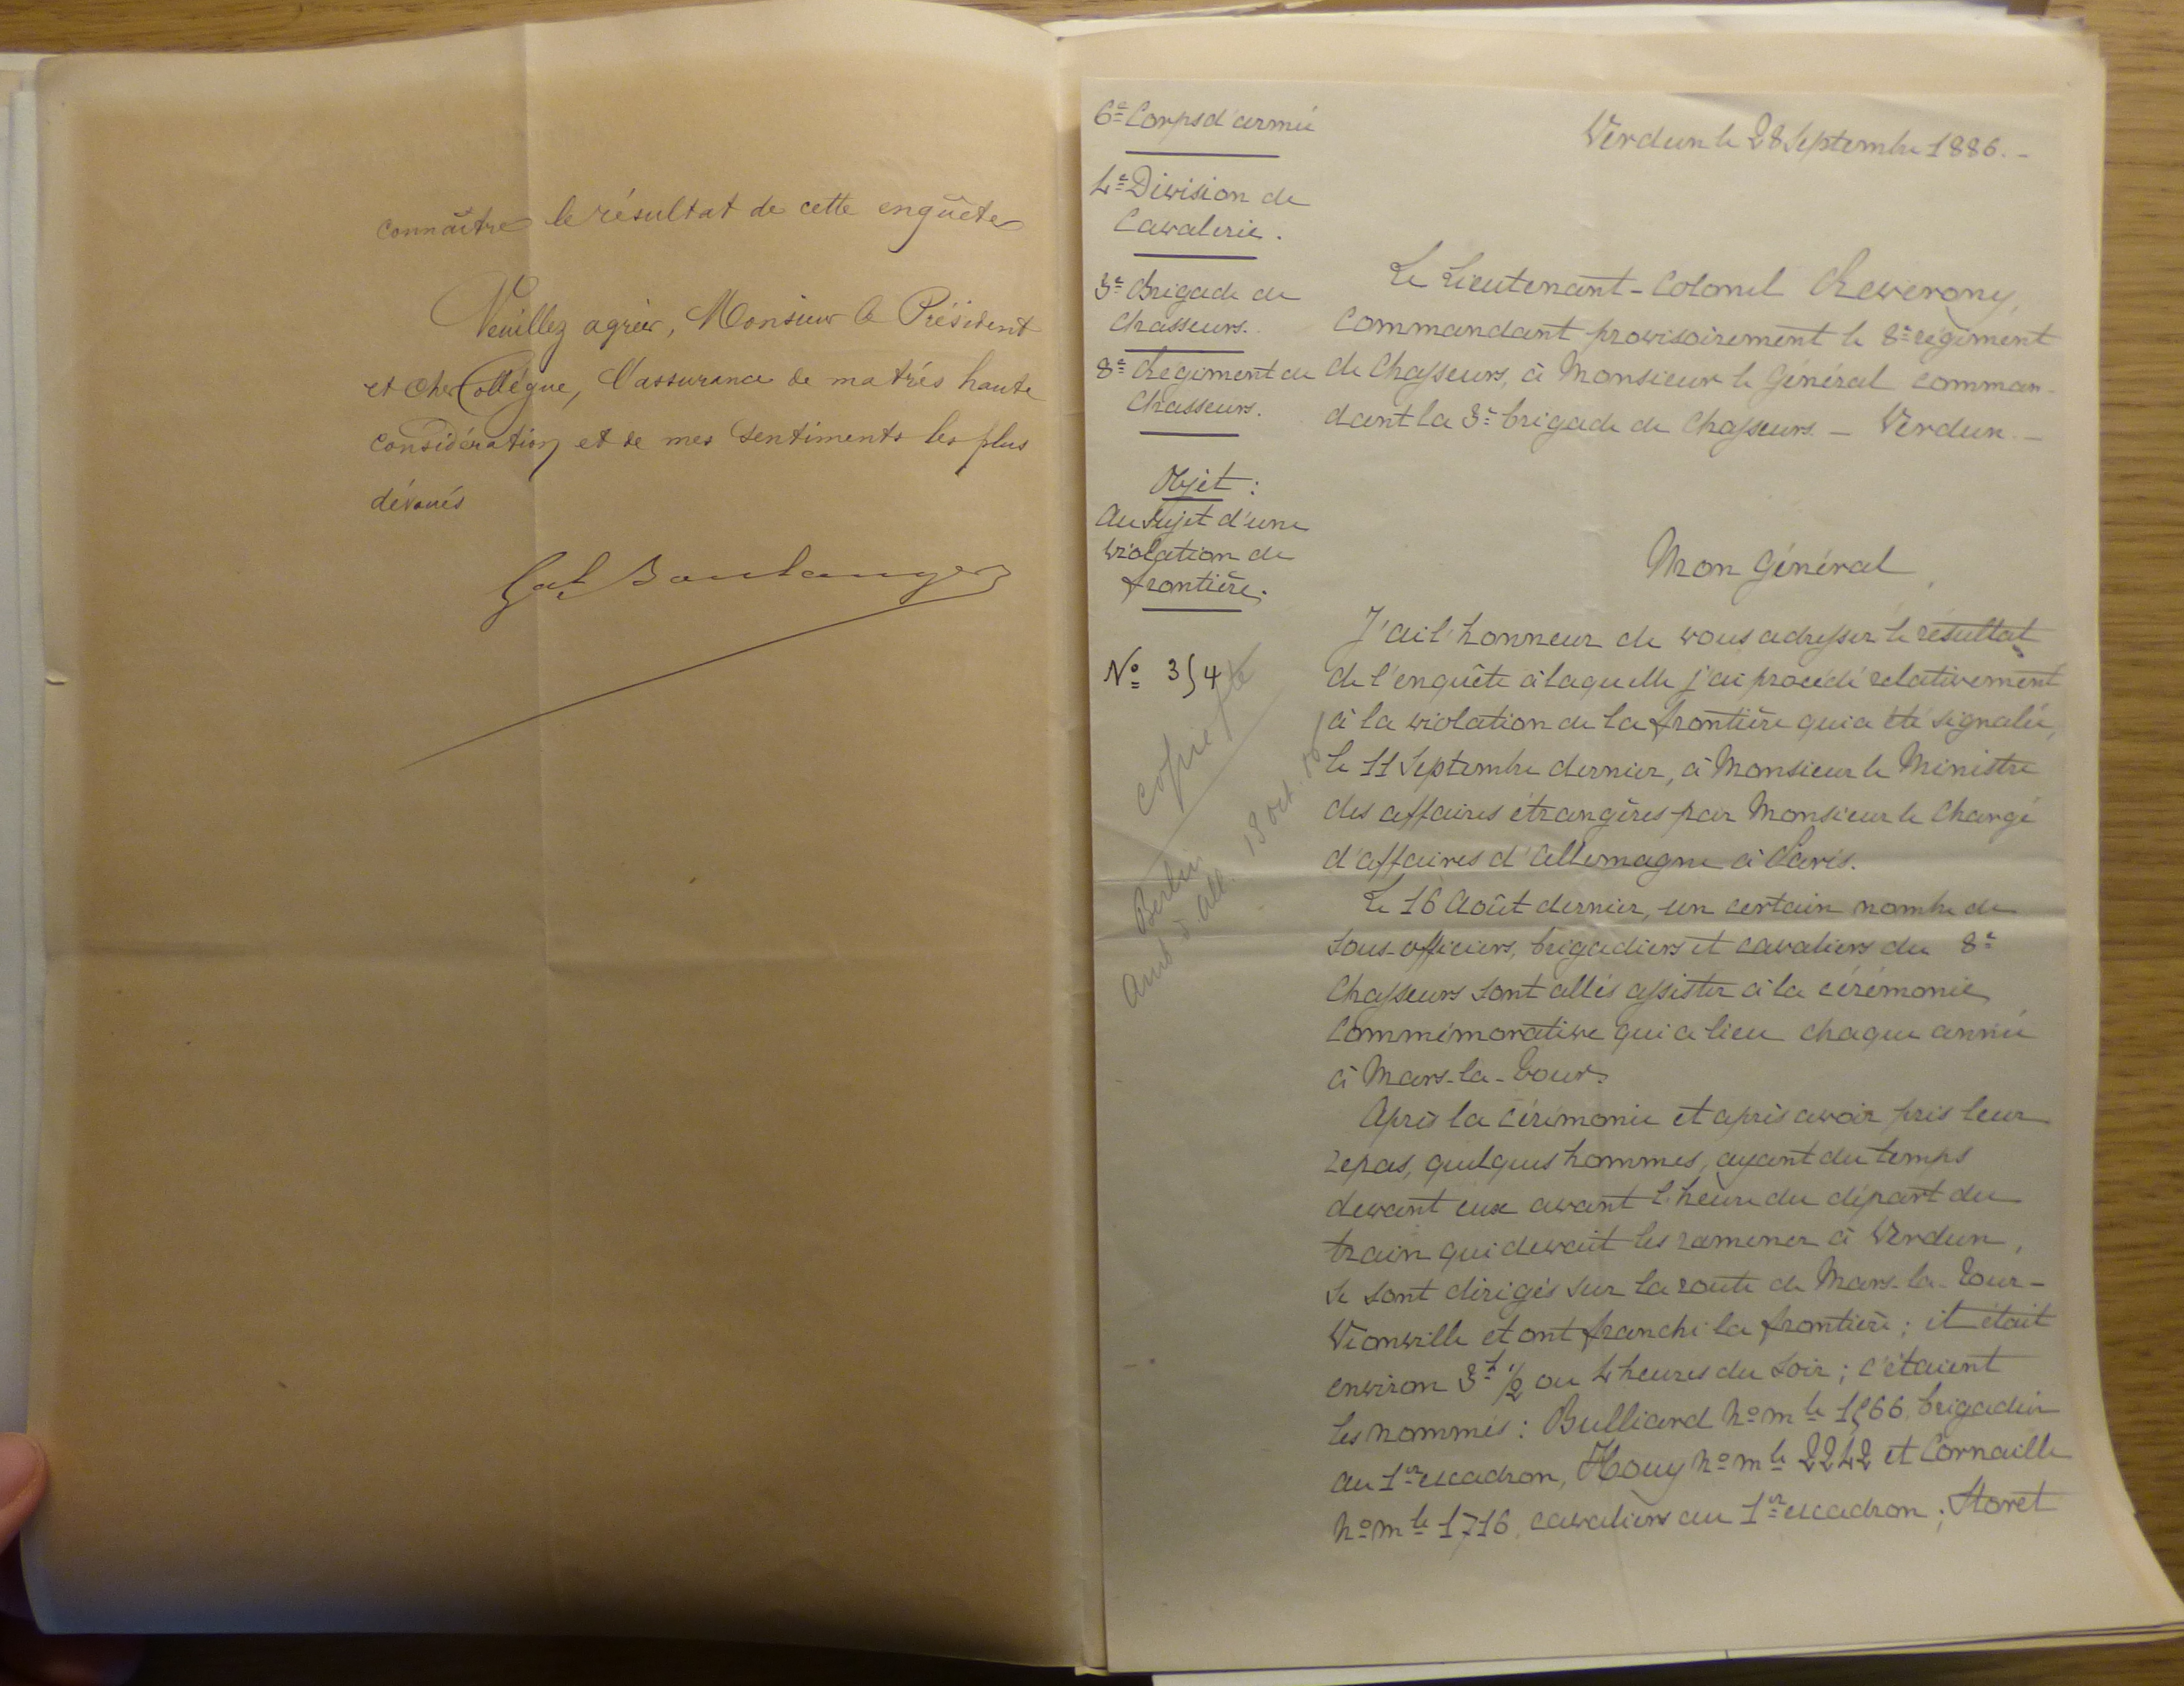 connaître le résultat de cette enquête
Veuillez agréer, Monsieur le Président
et cher Collègue, l'assurance de ma très haute
considération et de mes sentiments les plus
dévoués
Gal Boulanger
6e Corps d'armée
4e Division de
Cavalerie.
3e Brigade de
Chasseurs.
8e Régiment de
Chasseurs.
Objet :
Au sujet d'une
violation de
frontière.
No 354
copie
Berlin
Amb d. all. 18 oct. 86
Verdun le 28 Septembre 1886. -
Le Lieutenant-Colonel Rewerony,
commandant provisoirement le 8e régiment
de Chasseurs, à Monsieur le Général comman-
dant la 3e brigade de Chasseurs - Verdun. -
Mon Général
J'ai l'honneur de vous adresser le résultat
de l'enquête à laquelle j'ai procédé relativement
à la violation de la frontière qui a été signalée,
le 11 Septembre dernier, à Monsieur le Ministre
des affaires étrangères par Monsieur le Chargé
d'affaires d'Allemagne à Paris.
Le 16 Août dernier, un certain nombre de
sous-officiers, brigadiers et cavaliers du 8e
Chasseurs sont allés assister à la cérémonie
commémorative qui a lieu chaque année
à Mars-la-Tour.
Après la cérémonie et après avoir pris leur
repas, quelques hommes, ayant du temps
devant eux avant l'heure du départ du
train qui devait les ramener à Verdun,
se sont dirigés sur la route de Mars-la-Tour-
Vionville et ont franchi la frontière ; il était
environ 3h 1/2 ou 4 heures du soir ; c'étaient
les nommés : Bulliard No mle 1566, brigadier
au 1er escadron, Houy No mle 2242 et Cornaille
No mle 1716, cavaliers au 1er escadron ; Storet